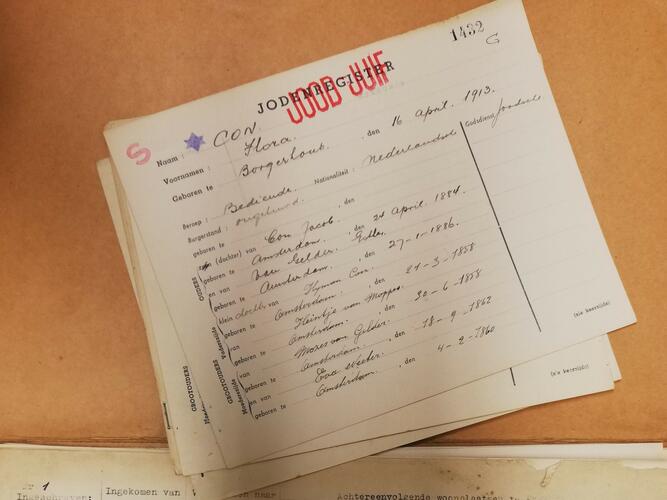 1432
G
JODENREGISTER
JOOD JUIF
S
Naam : CON.
Voornamen : Flora.
Geboren te Borgerhout. , den 16 April. 1913.
Beroep : Bediende. Nationaliteit : Nederlandsch Godsdienst Joodsch
Burgerstand : ongehuwd.
OUDERS
zoon (dochter) van Con Jacob.
geboren te Amsterdam. , den 24 April. 1884.
en van Van Gelder. Esther.
geboren te Amsterdam. , den 27-1-1886.
GROOTOUDERS
Vaderszijde
klein dochter van Hyman Con.
geboren te Amsterdam. , den 21-3-1858
en van Heintje van Moppes.
geboren te Amsterdam. , den 20-6-1858
GROOTOUDERS
Moederszijde
van Mozes van Gelder.
geboren te Amsterdam. , den 18-9-1862
en van Eva
geboren te Amsterdam. , den 4-2-1860
(zie keerzijde)
(zie keerzijde)
Ingeschreven:
Ingekomen van
en naar
Achtereenvolgende woonplaatsen